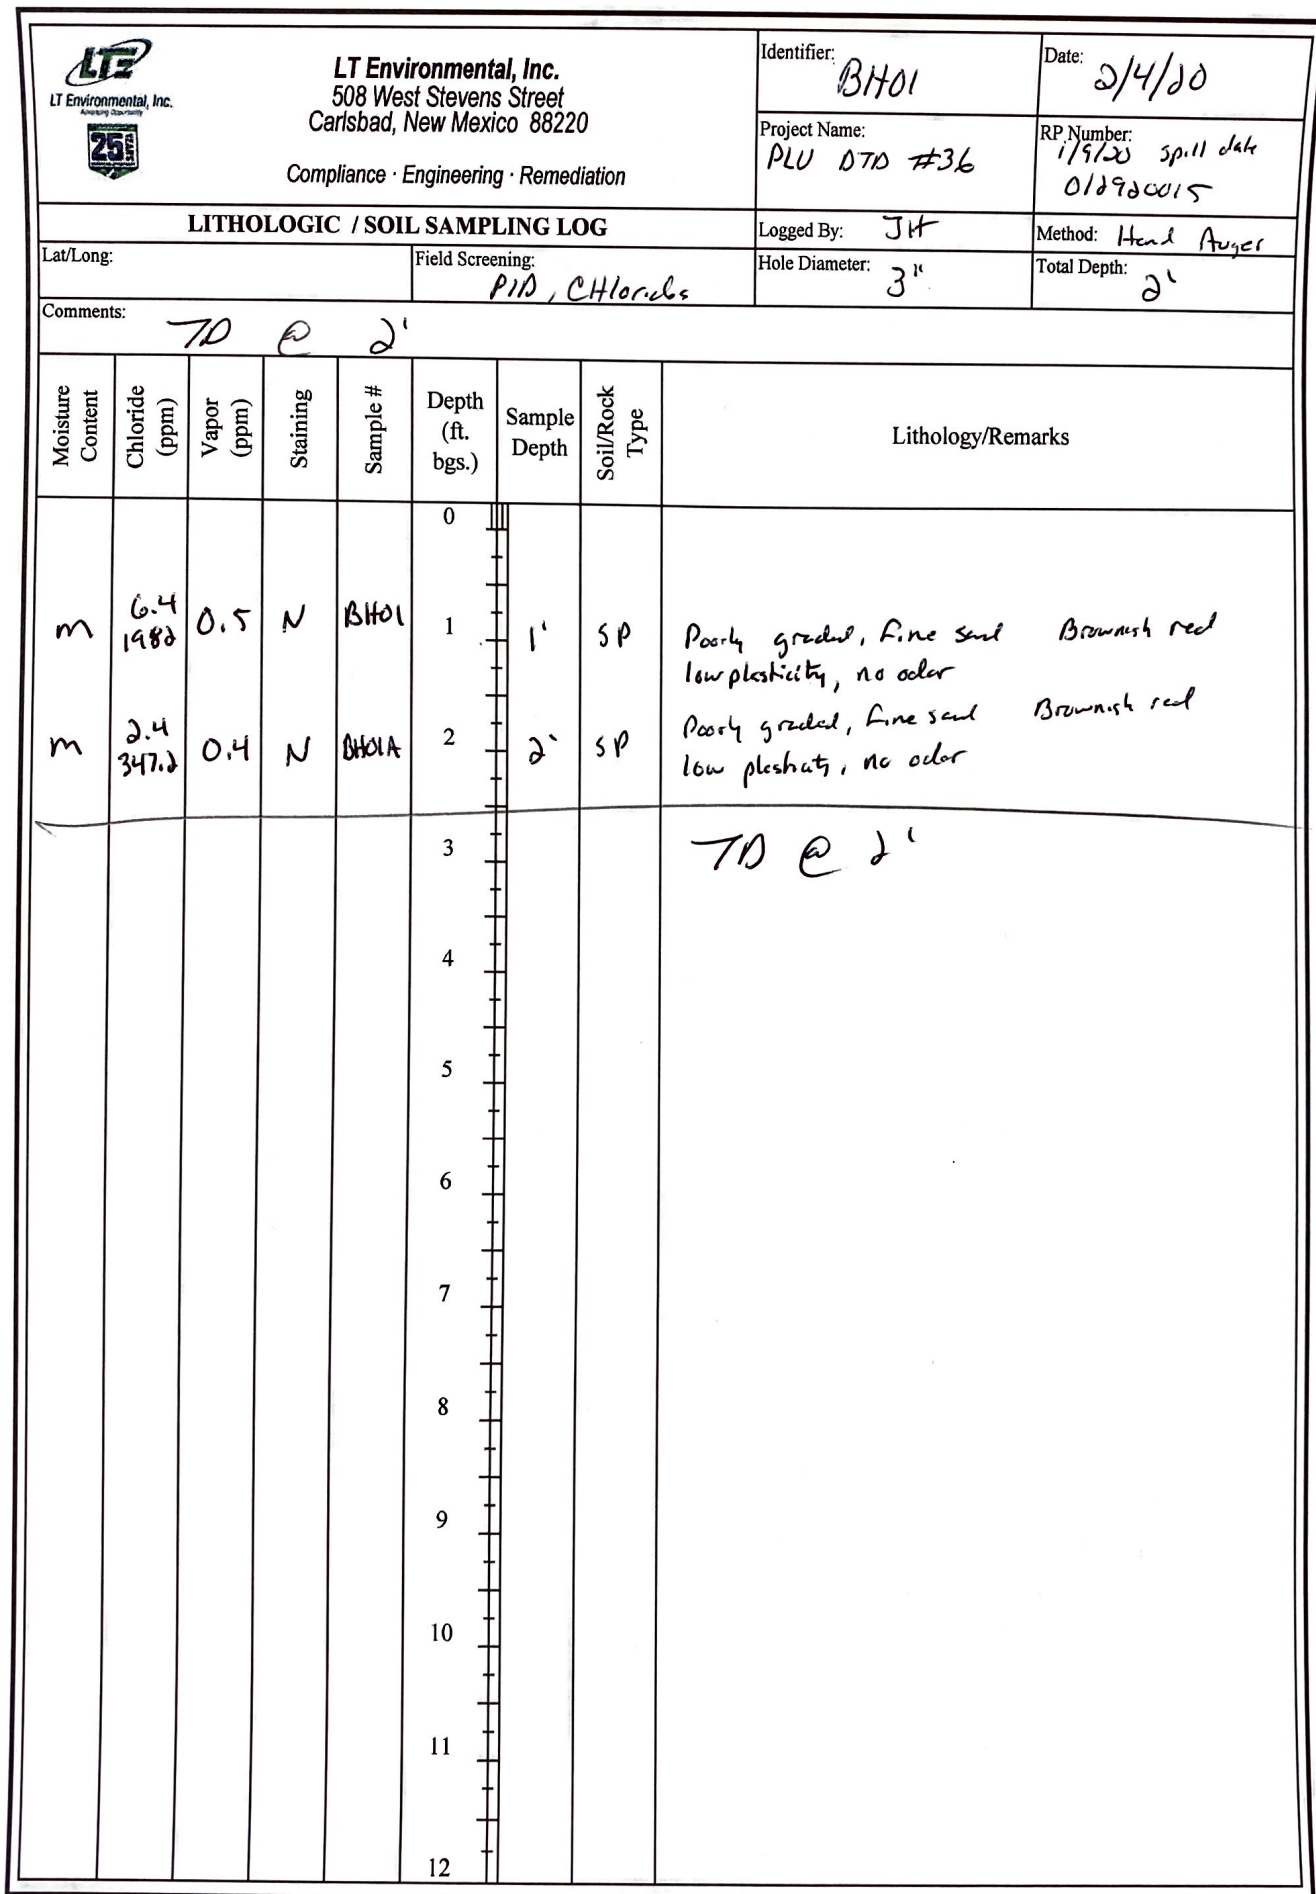 LTE
LT Environmental, Inc.
Advancing Opportunity
25
LT Environmental, Inc.
508 West Stevens Street
Carlsbad, New Mexico 88220
Compliance · Engineering · Remediation
Identifier: BH01
Date: 2/4/20
Project Name:
PLU DTD #36
RP Number:
1/9/20 spill date
012920015
LITHOLOGIC / SOIL SAMPLING LOG
Logged By: JH
Method: Hand Auger
Lat/Long:
Field Screening:
PID, CHlorides
Hole Diameter: 3"
Total Depth: 2'
Comments:
TD @ 2'
Moisture Content
Chloride (ppm)
Vapor (ppm)
Staining
Sample #
Depth (ft. bgs.)
Sample Depth
Soil/Rock Type
Lithology/Remarks
0
m 6.4 1982 0.5 N BH01 1 1' SP Poorly graded, fine sand Brownish red
low plasticity, no odor
m 2.4 347.2 0.4 N BH01A 2 2' SP Poorly graded, fine sand Brownish red
low plasticity, no odor
3 TD @ 2'
4
5
6
7
8
9
10
11
12